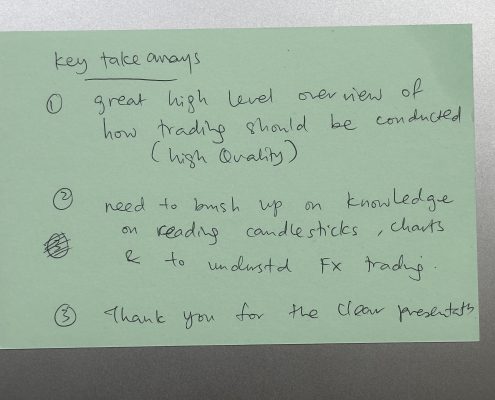 key take aways
① great high level overview of
how trading should be conducted
(high Quality)
② need to brush up on knowledge
on reading candlesticks, charts
& to understd FX trading.
③ Thank you for the clear presentatn